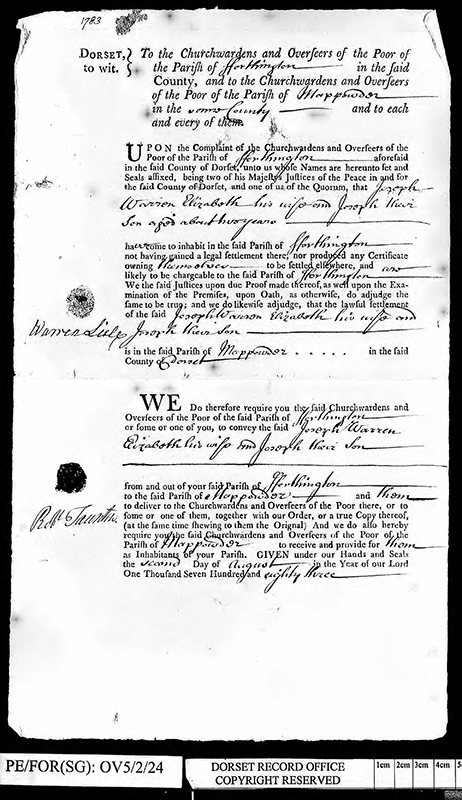 1783
DORSET, to wit. } To the Churchwardens and Overseers of the Poor of
the Parish of fforthington in the said
County, and to the Churchwardens and Overseers
of the Poor of the Parish of Mappowder
in the same County and to each
and every of them.
UPON the Complaint of the Churchwardens and Overseers of the
Poor of the Parish of fforthington aforesaid
in the said County of Dorset, unto us whose Names are hereunto set and
Seals affixed, being two of his Majesty's Justices of the Peace in and for
the said County of Dorset, and one of us of the Quorum, that Joseph
Warren Elizabeth his wife and Joseph their
Son aged about two years
have come to inhabit in the said Parish of fforthington
not having gained a legal settlement there, nor produced any Certificate
owning themselves to be settled elsewhere, and are
likely to be chargeable to the said Parish of fforthington
We the said Justices upon due Proof made thereof, as well upon the Exa-
mination of the Premises, upon Oath, as otherwise, do adjudge the
same to be true; and we do likewise adjudge, that the lawful settlement
of the said Joseph Warren Elizabeth his wife and
Joseph their Son
Warren Lisle
is in the said Parish of Mappowder . . . . . in the said
County of Dorset
WE Do therefore require you the said Churchwardens and
Overseers of the Poor of the said Parish of fforthington
or some or one of you, to convey the said Joseph Warren
Elizabeth his wife and Joseph their Son
from and out of your said Parish of fforthington
to the said Parish of Mappowder and them
to deliver to the Churchwardens and Overseers of the Poor there, or to
some or one of them, together with our Order, or a true Copy thereof,
(at the same time shewing to them the Orignal) And we do also hereby
require you the said Churchwardens and Overseers of the Poor of the
Parish of Mappowder to receive and provide for them
as Inhabitants of your Parish. GIVEN under our Hands and Seals
the second Day of August in the Year of our Lord
One Thousand Seven Hundred and eighty three
PE/FOR(SG): OV5/2/24
DORSET RECORD OFFICE
COPYRIGHT RESERVED
1cm 2cm 3cm 4cm 5